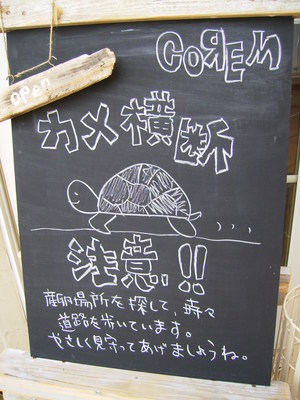 COREM
open
カメ横断
注意!!
産卵場所を探して、時々
道路を歩いています。
やさしく見守ってあげましょうね。